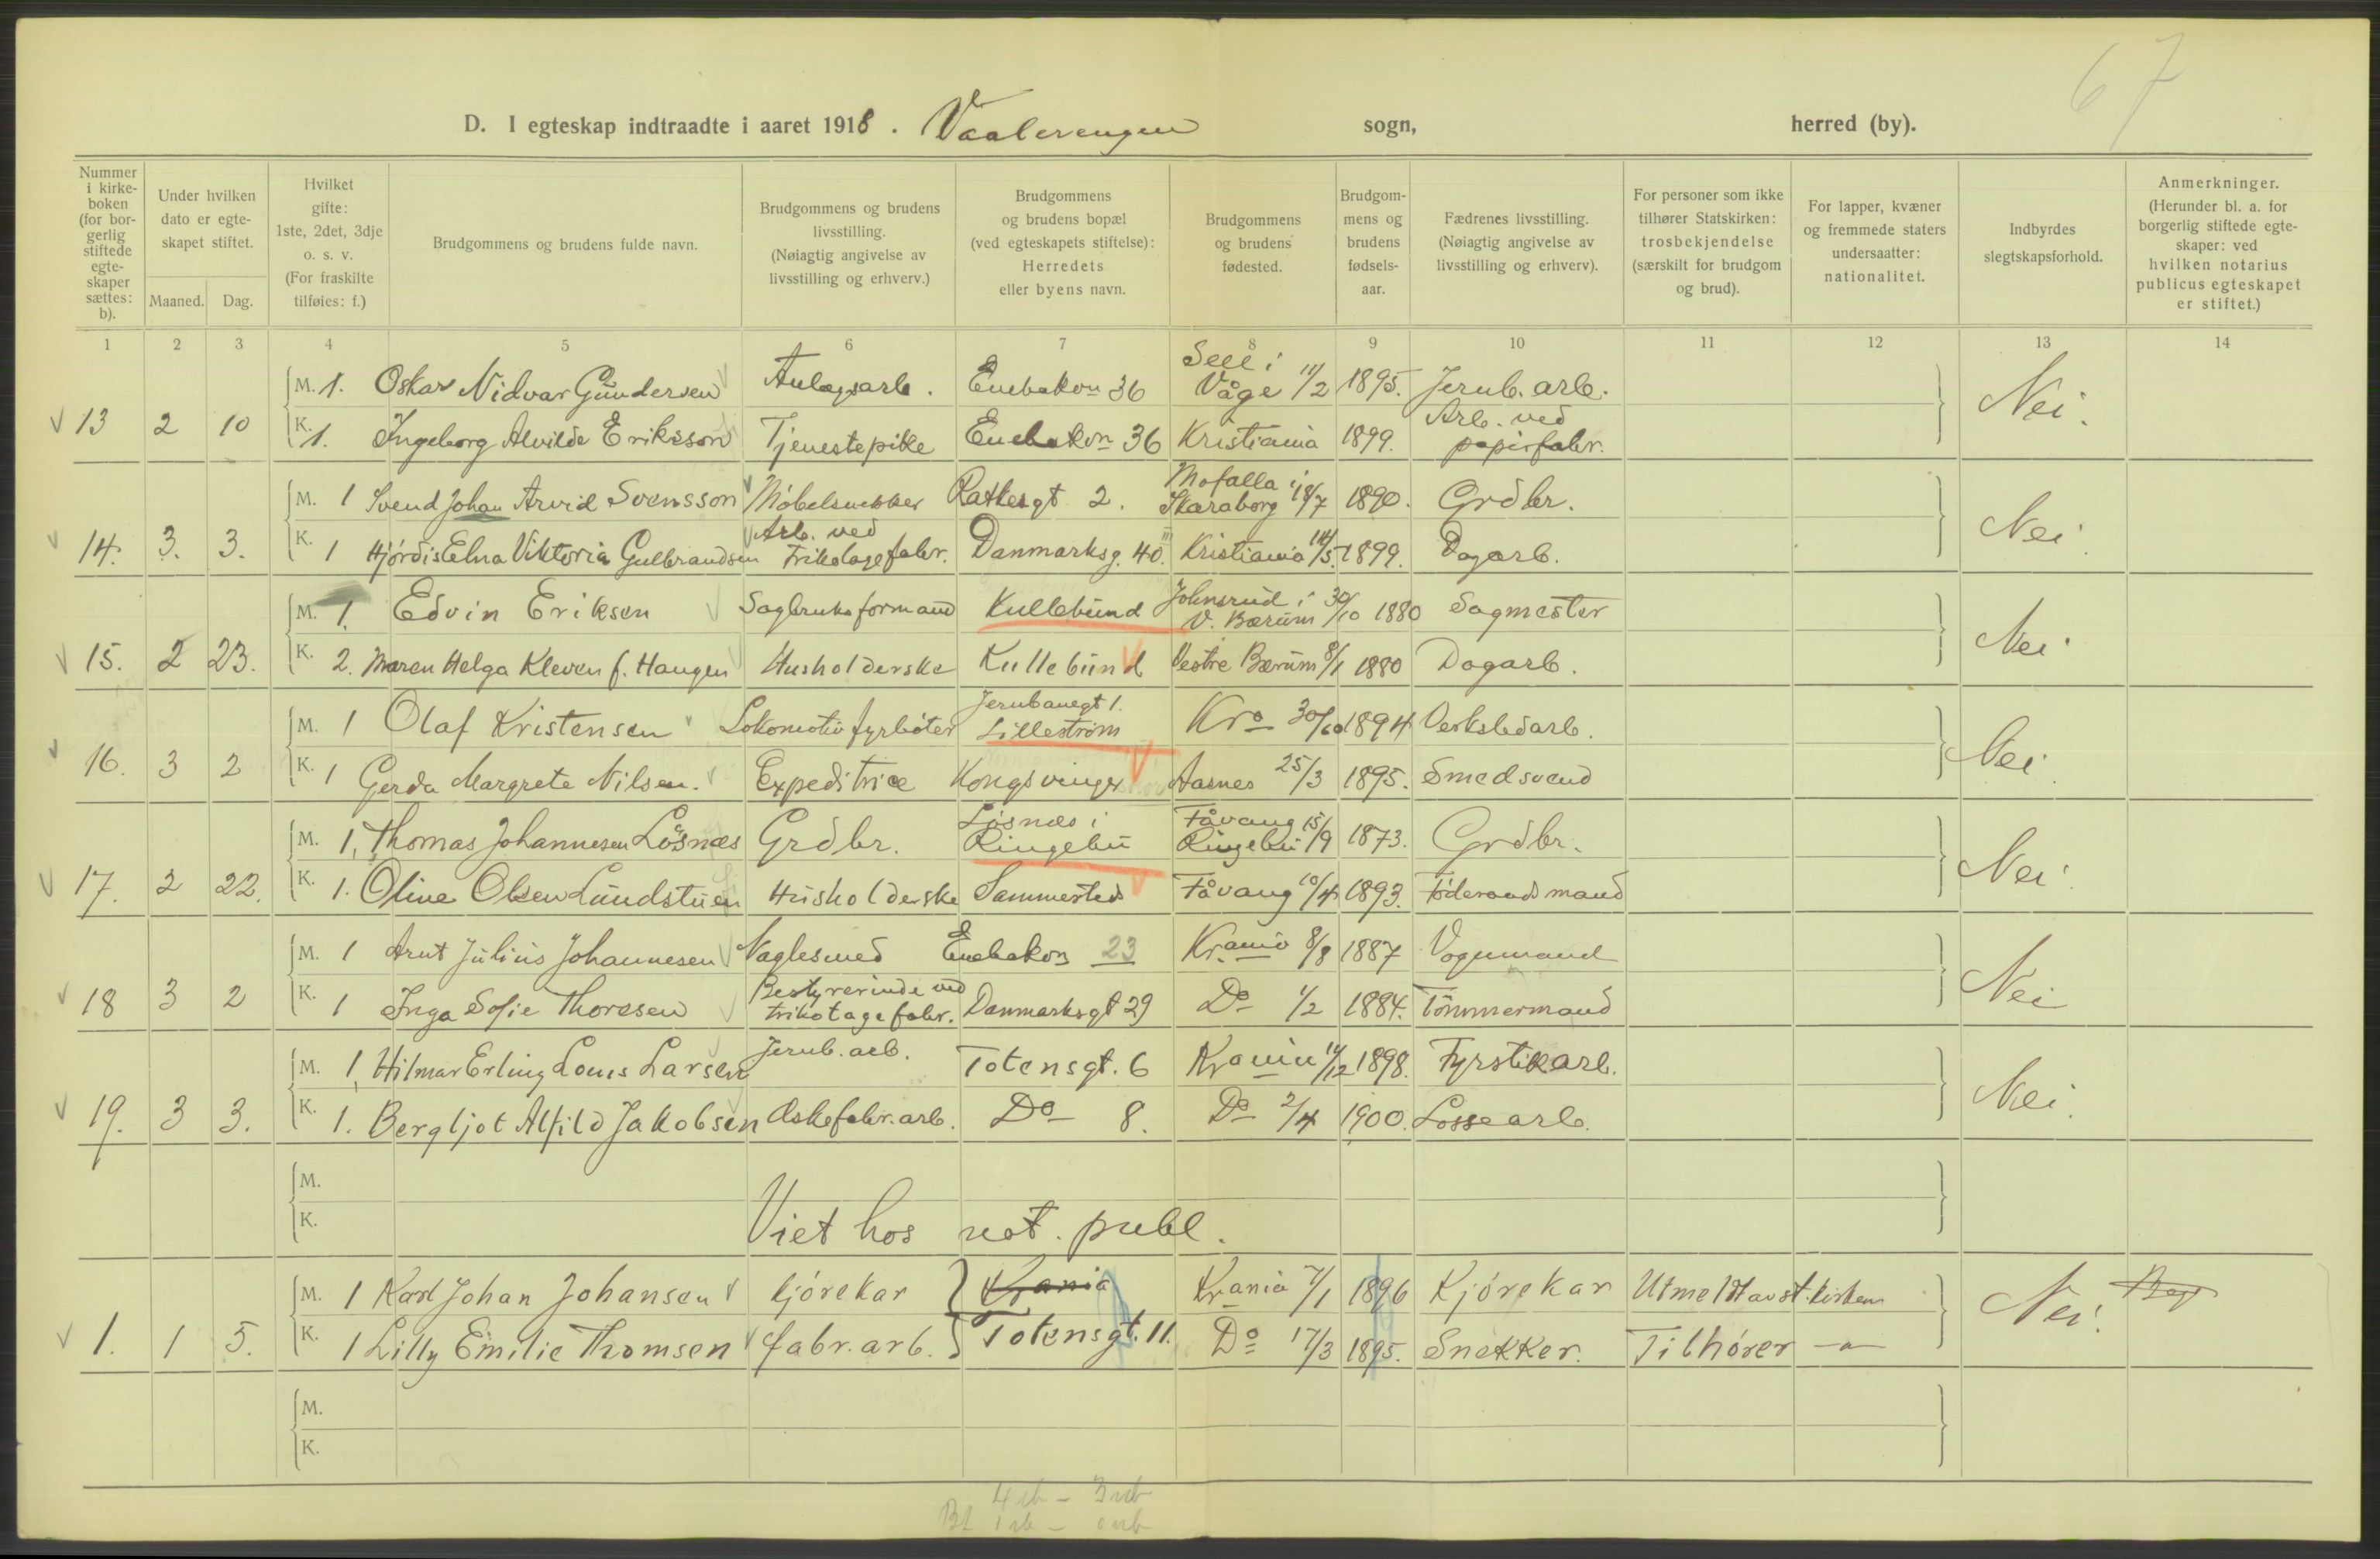 67
D. I egteskap indtraadte i aaret 1918. Vaalerengen sogn, herred (by).
Nummer i kirkeboken (for borgerlig stiftede egteskaper sættes: b).
Under hvilken dato er egteskapet stiftet.
Maaned. Dag.
Hvilket gifte: 1ste, 2det, 3dje o. s. v. (For fraskilte tilføies: f.)
Brudgommens og brudens fulde navn.
Brudgommens og brudens livsstilling. (Nøiagtig angivelse av livsstilling og erhverv.)
Brudgommens og brudens bopæl (ved egteskapets stiftelse): Herredets eller byens navn.
Brudgommens og brudens fødested.
Brudgommens og brudens fødselsaar.
Fædrenes livsstilling. (Nøiagtig angivelse av livsstilling og erhverv).
For personer som ikke tilhører Statskirken: trosbekjendelse (særskilt for brudgom og brud).
For lapper, kvæner og fremmede staters undersaatter: nationalitet.
Indbyrdes slegtskapsforhold.
Anmerkninger. (Herunder bl. a. for borgerlig stiftede egteskaper: ved hvilken notarius publicus egteskapet er stiftet.)
1 2 3 4 5 6 7 8 9 10 11 12 13 14
M. 1. Oskar Nidvar Gundersen Anlægsarb. Enebakvn 36 Sell i Våge 11/2 1895. Jernb. arb.
13 2 10 K. 1. Ingeborg Alvilde Eriksson Tjenestepike Enebakvn 36 Kristiania 1899. Arb. ved papirfabr. Nei.
M. 1 Svend Johan Arvid Svensson Møbelsnekker Rathesgt 2. Mofalla i Skaraborg 18/7 1890. Grdbr.
14. 3. 3. K. 1 Hjørdis Elna Viktoria Gulbrandsen Arb. ved Trikotagefabr. Danmarksg. 40 III Kristiania 14/5 1899. Dagarb. Nei.
M. 1. Edvin Eriksen Sagbruksformand Kullebund Johnsrud i V. Bærum 30/10 1880 Sagmester
15. 2 23. K. 2. Maren Helga Kleven f. Haugen Husholderske Kullebund Vestre Bærum 8/1 1880 Dagarb. Nei.
M. 1 Olaf Kristensen Lokomotivfyrbøter Jernbanegt 1. Lillestrøm Kra 30/10 1894 Verkstedarb.
16. 3 2 K. 1 Gerda Margrete Nilsen. Expeditrice Kongsvinger Aasnes 25/3 1895. Smedsvend Nei.
M. 1. Thomas Johannesen Løsnæs Grdbr. Løsnæs i Ringebu Fåvang Ringebu 15/9 1873. Grdbr.
17. 2 22. K. 1. Oline Olsen Lundstuen Husholderske Sammesteds Fåvang 10/4 1893. Føderaadsmand Nei.
M. 1 Arnt Julius Johannesen Naglesmed Enebakvn 23 Krania 8/8 1887 Vognmand
18 3 2 K. 1 Inga Sofie Thoresen Bestyrerinde ved trikotagefabr. Danmarksgt 29 Do 1/2 1884. Tømmermand Nei
M. 1. Hilmar Erling Louis Larsen Jernb. arb. Totensgt. 6 Krania 14/12 1898. Fyrstikarb.
19. 3 3. K. 1. Bergljot Alfild Jakobsen Æskefabr. arb. Do 8. Do 2/4 1900. Lossearb. Nei.
M.
K. Viet hos not. publ.
M. 1 Karl Johan Johansen kjørekar Krania Krania 7/1 1896 Kjørekar Utmeldt av st. kirken
1. 1 5. K. 1 Lilly Emilie Thomsen fabr. arb. Totensgt. 11. Do 17/3 1895. Snekker. Tilhører —"— Nei.
M.
K.